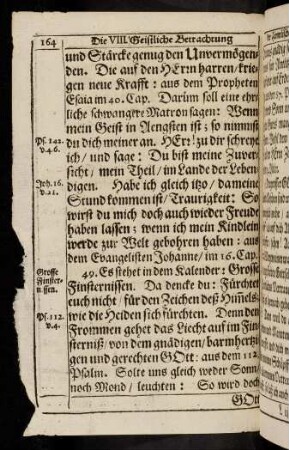 164
Die VIII. Geistliche Betrachtung
und Stärcke genug den Unvermögen-
den. Die auf den HErrn harren/ krie-
gen neue Krafft: aus dem Propheten
Esaia im 40. Cap. Darum soll eine ehr-
liche schwangere Matron sagen: Wenn
mein Geist in Aengsten ist; so nimmst
du dich meiner an. HErr! zu dir schreye
ich/ und sage: Du bist meine Zuver-
sicht/ mein Theil/ im Lande der Leben-
digen. Habe ich gleich itzo/ da meine
Stund kommen ist/ Traurigkeit: So
wirst du mich doch auch wieder Freude
haben lassen; wenn ich mein Kindlein
werde zur Welt gebohren haben: aus
dem Evangelisten Johanne/ im 16. Cap.
49. Es stehet in dem Kalender: Grosse
Finsternissen. Da dencke du: Fürchtet
euch nicht/ für den Zeichen deß Himels
wie die Heiden sich fürchten. Denn den
Frommen gehet das Liecht auf im Fin-
sterniß/ von dem gnädigen/ barmhertzi-
gen und gerechten GOtt: aus dem 112.
Psalm. Solte uns gleich weder Sonn
noch Mond/ leuchten: So wird doch
GOtt
Ps. 142.
v. 4.6.
Joh. 16.
v. 21.
Grosse
Finster-
nissen.
Ps. 112.
v. 4.